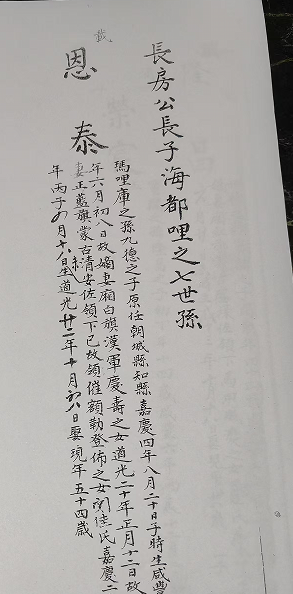 長房公長子海都哩之七世孫
載
恩泰
瑪哩庫之孫九德之子原任朝城縣知縣嘉慶四年八月二十日子時生咸豐
年六月初八日故嫡妻廂白旗漢軍慶壽之女道光二十年正月十二日故
妻正藍旗蒙古清安佐領下已故領催額勒登佈之女關佳氏嘉慶二
年丙子 月十八日 生道光廿二年十月初八日娶現年五十四歲